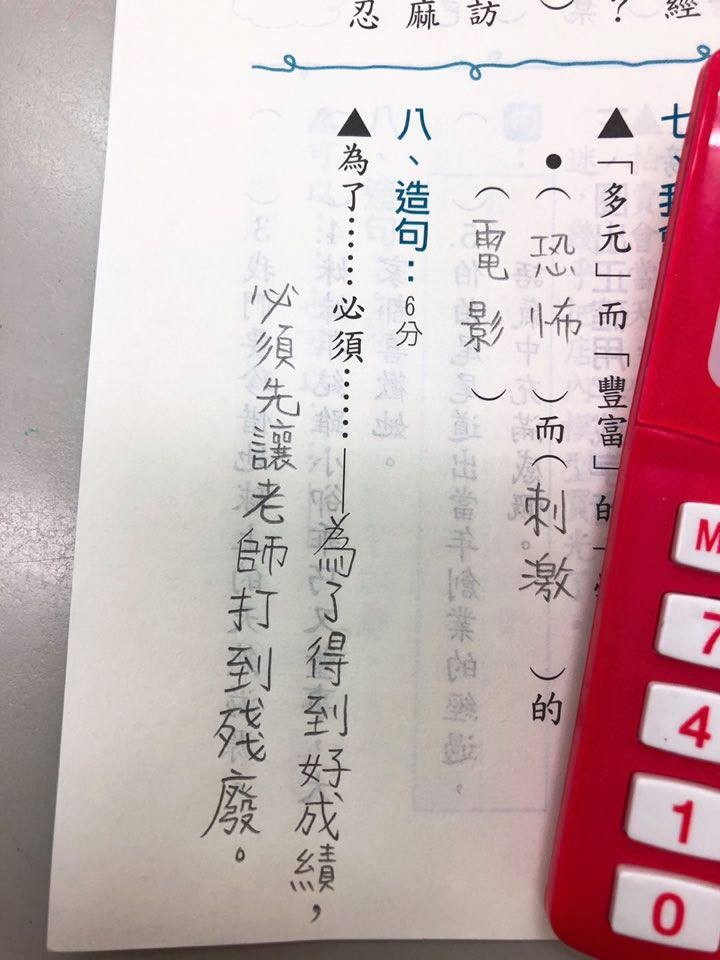 經
?
)
訪
麻
忍
七、
▲「多元」而「豐富」的「
●(恐怖)而(刺激)的
(電影)
八、造句:6分
▲為了……必須……——為了得到好成績,
必須先讓老師打到残廢。
M
7
4
1
0